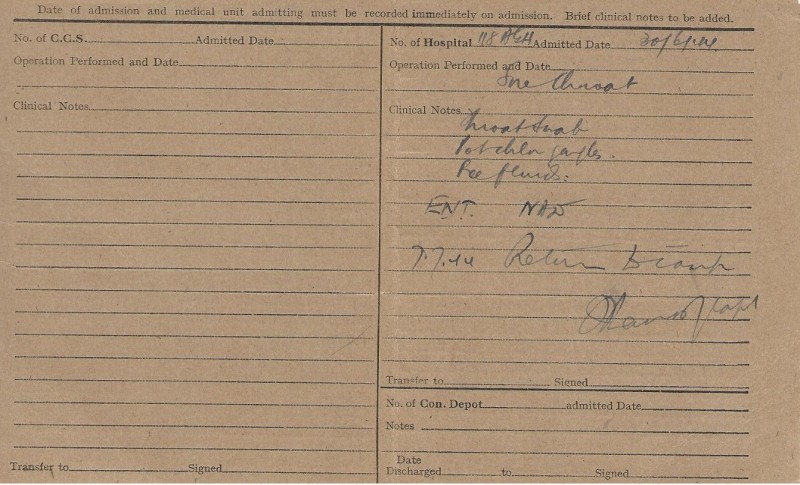 Date of admission and medical unit admitting must be recorded immediately on admission. Brief clinical notes to be added.
No. of C.C.S. Admitted Date
Operation Performed and Date
Clinical Notes
Transfer to Signed
No. of Hospital 118 AGH Admitted Date 30/6/44
Operation Performed and Date
Sore Throat
Clinical Notes
Throat Swab
Pot chlor gargles.
Free fluids:
ENT. NAD
7.7.44 Return to camp
Capt
Transfer to Signed
No. of Con. Depot admitted Date
Notes
Date
Discharged to Signed